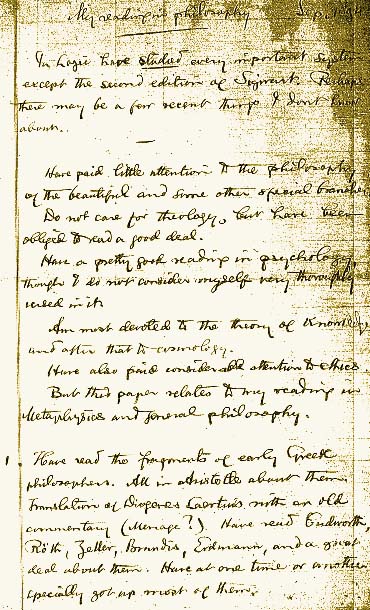 My reading in philosophy
In Logic have studied every important system
except the second edition of Sigwart. Perhaps
there may be a few recent things I don't know
about.
Have paid little attention to the philosophy
of the beautiful and some other special branches
Do not care for theology, but have been
obliged to read a good deal.
Have a pretty good reading in psychology,
though I do not consider myself very thoroughly
versed in it.
Am most devoted to the theory of Knowledge
and after that to cosmology.
Have also paid considerable attention to ethics.
But this paper relates to my reading in
Metaphysics and general philosophy.
1. Have read the fragments of early Greek
philosophers. All in Aristotle about them.
Translation of Diogenes Laertius with an old
commentary (Menage?). Have read Cudworth,
Röth, Zeller, Brandis, Erdmann, and a great
deal about them. Have at one time or another
specially got up most of them.